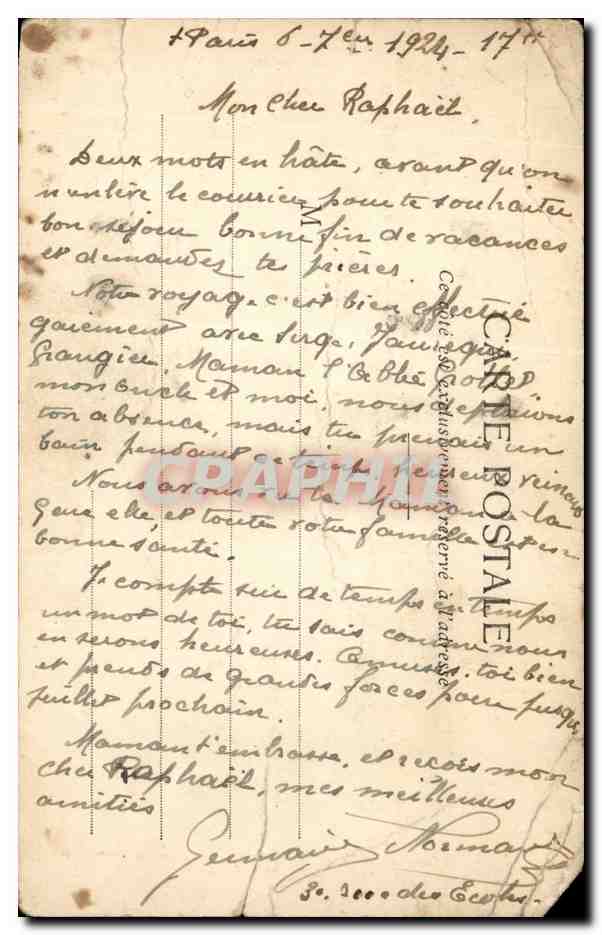 + Paris 6 - 7bre 1924 - 17h
Mon cher Raphaël,
Deux mots en hâte, avant qu'on
n'enlève le courrier pour te souhaiter
bon séjour bonne fin de vacances
et demander tes prières.
Notre voyage c'est bien effectué
gaiement avec Serge,
Maman l'Abbé
mon oncle et moi, nous déplorions
ton absence, mais tu prenais un
bain pendant ce temps heureux
Nous avons vu ta Maman à la
gare elle et toute votre famille est en
bonne santé.
Je compte sur de temps en temps
un mot de toi, tu sais comme nous
en serons heureuses. Amuses-toi bien
et prends de grandes forces pour jusque
juillet prochain.
Maman t'embrasse, et reçois mon
cher Raphaël, mes meilleures
amitiés
Germaine Normand
30, rue des Ecoles.
CARTE POSTALE
Ce côté est exclusivement réservé à l'adresse
M
CPAPHIL